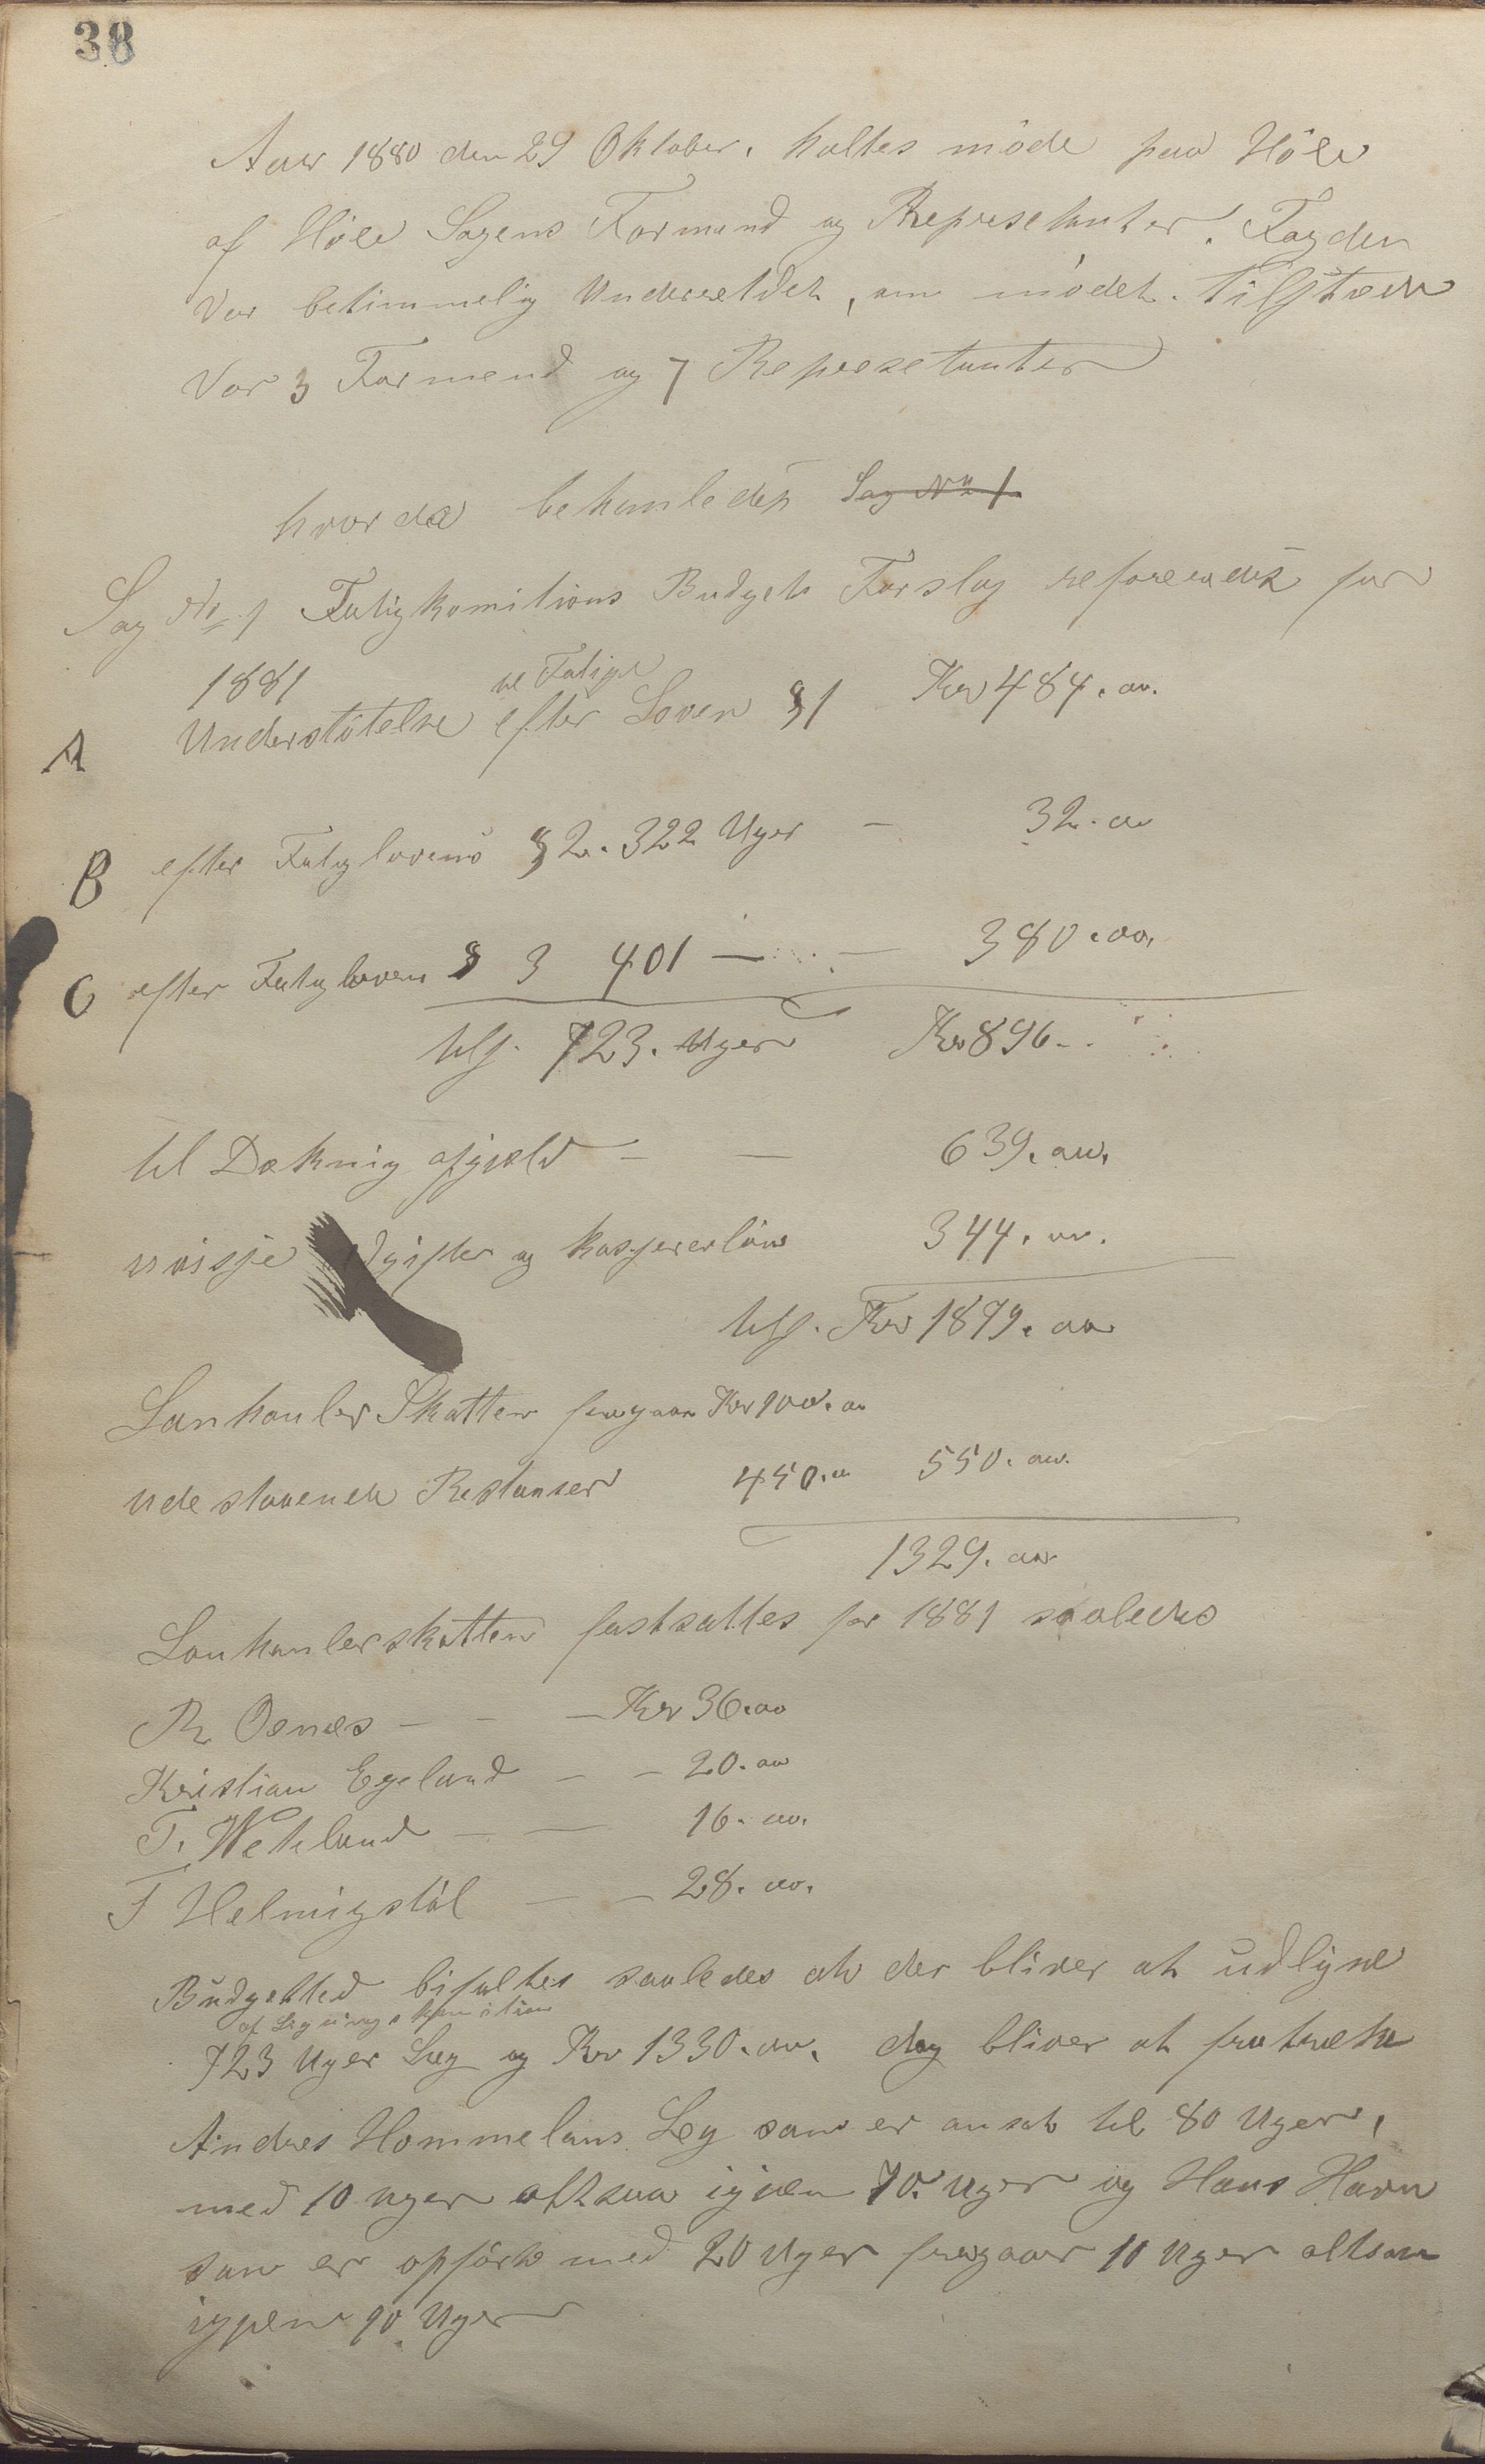 38
Aar 1880 den 29 Oktober. holtes møde paa Høle
af Høle Sogens Formend og Represetanter. Fogden
Var betimmelig Underrettet, om mødet. tilstæde
Var 3 Formend og 7 Represetanter
hvor da behanledes Sag No 1
Sag No 1 Fatigkomitions Budgets Forslag refereredes for
1881
til Fatige
A Understøtelse efter Loven § 1 Kr 484. oo.
B efter Fatiglovens § 2. 322 Uger — 32. oo
C efter Fatigloven § 3 401 — — 380. oo.
tils. 723. Uger Kr 896..
til Dækning afgjæld — — 639. oo.
uvisje Udgifter og kasjererløn 344. oo.
tils. Kr 1879. oo
Lanhanler Skatten fragaar Kr 100. oo
udestaaende Restanser 450. oo 550. oo.
1329. oo
Lanhanlerskatten fastsattes for 1881 saaledes
R. Oenes — — — Kr 36. oo
Kristian Egeland — — 20. oo
T. Weteland — — 16. oo.
T Helmigstøl — — 28. oo.
Budgetted bifaltes saaledes at der bliver at udligne
af Ligningskomition
723 Uger Læg og Kr 1330. oo. dog bliver at fratræke
Andres Hommelans Leg som er ansat til 80 Uger,
med 10 uger altsaa igjæn 70. Uger og Hans Havn
som er opført med 20 Uger fragaar 10 Uger altsaa
igjæn 10 Uger